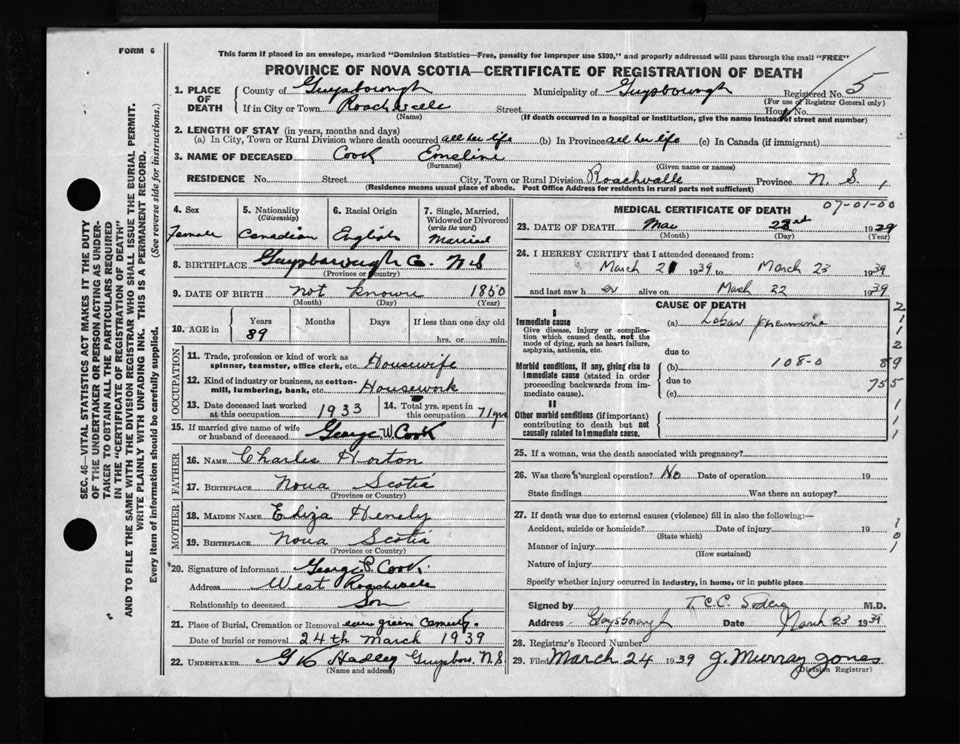 FORM 6
This form if placed in an envelope, marked "Dominion Statistics—Free, penalty for improper use $300," and properly addressed will pass through the mail "FREE"
PROVINCE OF NOVA SCOTIA—CERTIFICATE OF REGISTRATION OF DEATH
5
1. PLACE OF DEATH
County of Guysborough Municipality of Guysborough Registered No.
(For use of Registrar General only)
If in City or Town Roachvale Street House No.
(Name) (If death occurred in a hospital or institution, give the name instead of street and number)
2. LENGTH OF STAY (in years, months and days)
(a) In City, Town or Rural Division where death occurred all her life (b) In Province all her life (c) In Canada (if immigrant)
3. NAME OF DECEASED Cook Emeline
(Surname) (Given name or names)
RESIDENCE No. Street City, Town or Rural Division Roachvalle Province N. S.
(Residence means usual place of abode. Post Office Address for residents in rural parts not sufficient)
07-01-00
4. Sex
Female
5. Nationality (Citizenship)
Canadian
6. Racial Origin
English
7. Single, Married, Widowed or Divorced (write the word)
Married
8. BIRTHPLACE Guysborough Co. N S
(Province or Country)
9. DATE OF BIRTH not known 1850
(Month) (Day) (Year)
10. AGE in
Years Months Days If less than one day old
89 hrs. or min.
OCCUPATION
11. Trade, profession or kind of work as spinner, teamster, office clerk, etc. Housewife
12. Kind of industry or business, as cotton-mill, lumbering, bank, etc. Housework
13. Date deceased last worked at this occupation 1933
14. Total yrs. spent in this occupation 71 yrs
15. If married give name of wife or husband of deceased George W Cook
FATHER
16. NAME Charles Horton
17. BIRTHPLACE Nova Scotia
(Province or Country)
MOTHER
18. MAIDEN NAME Eliza Henely
19. BIRTHPLACE Nova Scotia
(Province or Country)
20. Signature of informant George P. Cook
Address West Roachvale
Relationship to deceased Son
21. Place of Burial, Cremation or Removal ever green Cemetry.
Date of burial or removal 24th March 1939
22. UNDERTAKER Hadley Guysboro. N.S.
(Name and address)
MEDICAL CERTIFICATE OF DEATH
23. DATE OF DEATH Mar 23rd 1939
(Month) (Day) (Year)
24. I HEREBY CERTIFY that I attended deceased from:
March 21 1939 to March 23 1939
and last saw h er alive on March 22 1939
CAUSE OF DEATH
I
Immediate cause
Give disease, injury or complication which caused death, not the mode of dying, such as heart failure, asphyxia, asthenia, etc.
(a) Lobar Pneumonia
due to
Morbid conditions, if any, giving rise to immediate cause (stated in order proceeding backwards from immediate cause).
(b) 108-0
due to
(c)
II
Other morbid conditions (if important) contributing to death but not causally related to immediate cause.
2
1
1
2
89
755
1
1
1
25. If a woman, was the death associated with pregnancy?
26. Was there a surgical operation? No Date of operation 19
State findings Was there an autopsy?
27. If death was due to external causes (violence) fill in also the following:—
Accident, suicide or homicide? Date of injury 19
(State which)
Manner of injury
(How sustained)
Nature of injury
Specify whether injury occurred in industry, in home, or in public place
1
0
1
Signed by T.C.C. M.D.
Address Guysborough Date March 23 1939
28. Registrar's Record Number
29. Filed March 24 1939 J. Murray Jones
(Division Registrar)
SEC. 46—VITAL STATISTICS ACT MAKES IT THE DUTY
OF THE UNDERTAKER OR PERSON ACTING AS UNDER-
TAKER TO OBTAIN ALL THE PARTICULARS REQUIRED
IN THE "CERTIFICATE OF REGISTRATION OF DEATH"
AND TO FILE THE SAME WITH THE DIVISION REGISTRAR WHO SHALL ISSUE THE BURIAL PERMIT.
WRITE PLAINLY WITH UNFADING INK. THIS IS A PERMANENT RECORD.
Every item of information should be carefully supplied. (See reverse side for instructions.)